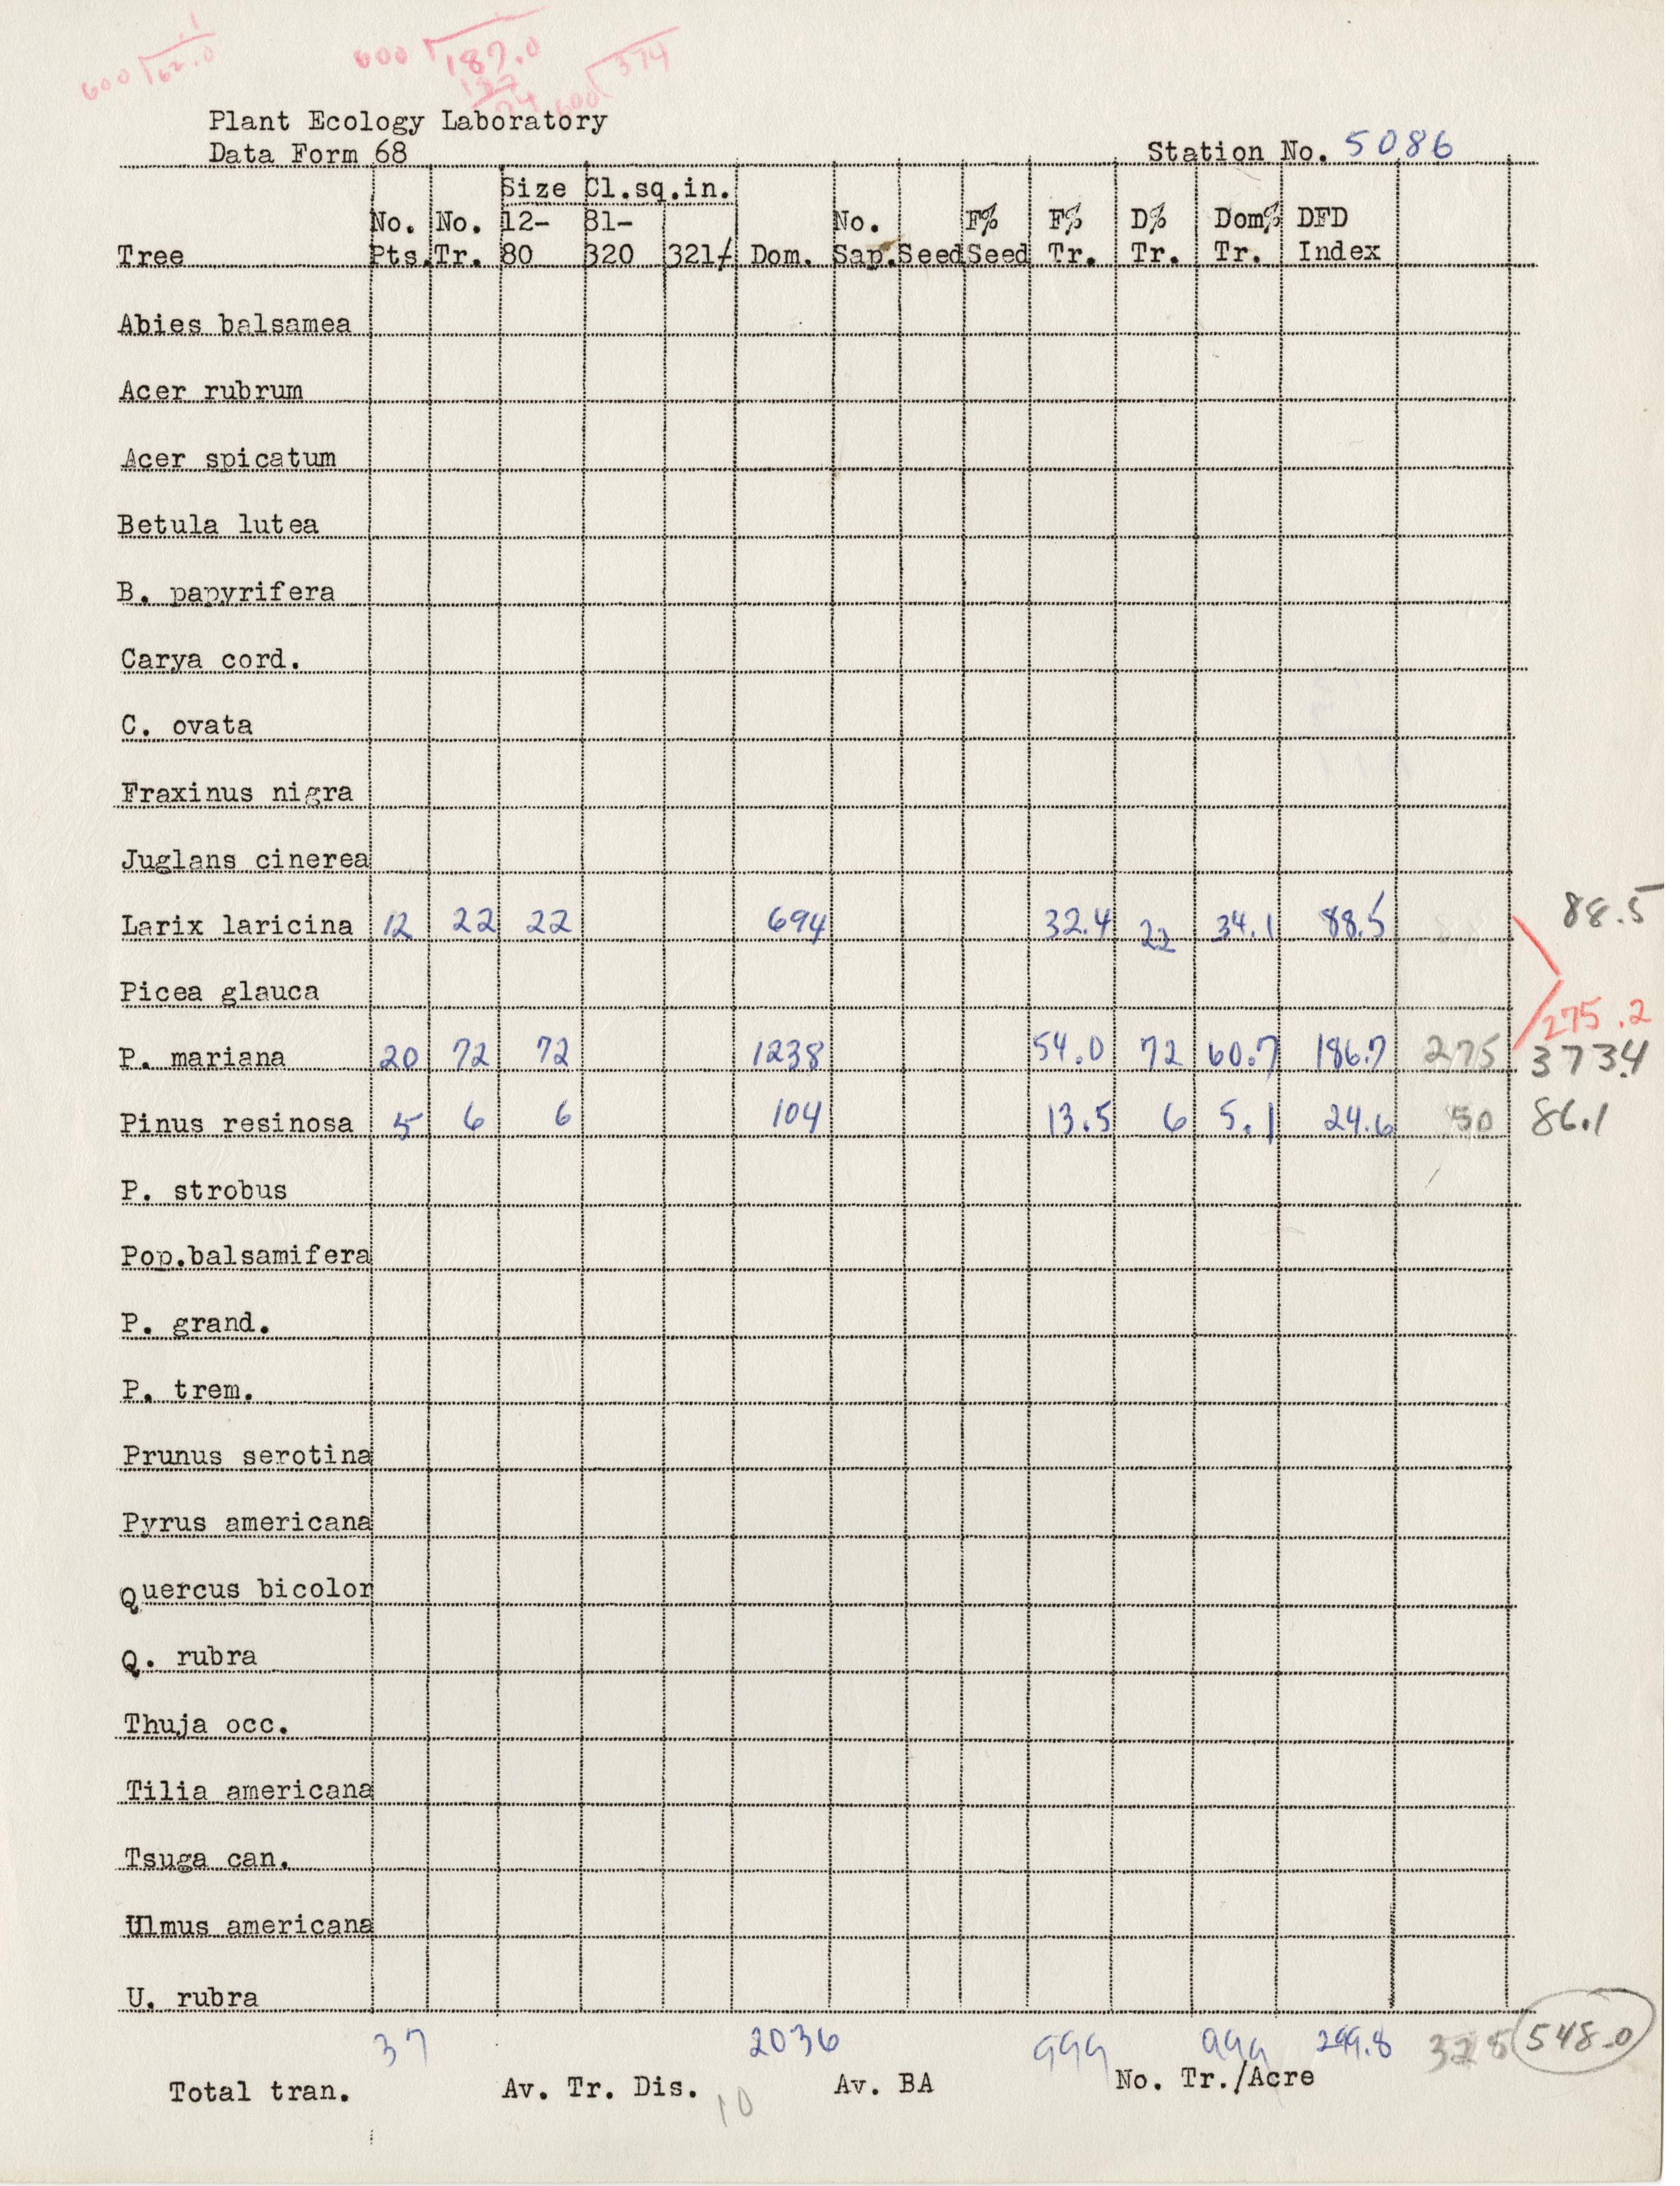 600 62.0 1
600 187.0 1
600 374
Plant Ecology Laboratory
Data Form 68 Station No. 5086
Size Cl.sq.in.
No. No. 12- 81- No. F% F% D% Dom% DFD
Tree Pts. Tr. 80 320 321+ Dom. Sap. Seed Seed Tr. Tr. Tr. Index
Abies balsamea
Acer rubrum
Acer spicatum
Betula lutea
B. papyrifera
Carya cord.
C. ovata
Fraxinus nigra
Juglans cinerea
Larix laricina 12 22 22 694 32.4 22 34.1 88.5 88.5
Picea glauca
275.2
P. mariana 20 72 72 1238 54.0 72 60.7 186.7 275 373.4
Pinus resinosa 5 6 6 104 13.5 6 5.1 24.6 50 86.1
P. strobus
Pop.balsamifera
P. grand.
P. trem.
Prunus serotina
Pyrus americana
Quercus bicolor
Q. rubra
Thuja occ.
Tilia americana
Tsuga can.
Ulmus americana
U. rubra
37 2036 999 999 299.8 325 548.0
Total tran. Av. Tr. Dis. 10 Av. BA No. Tr./Acre